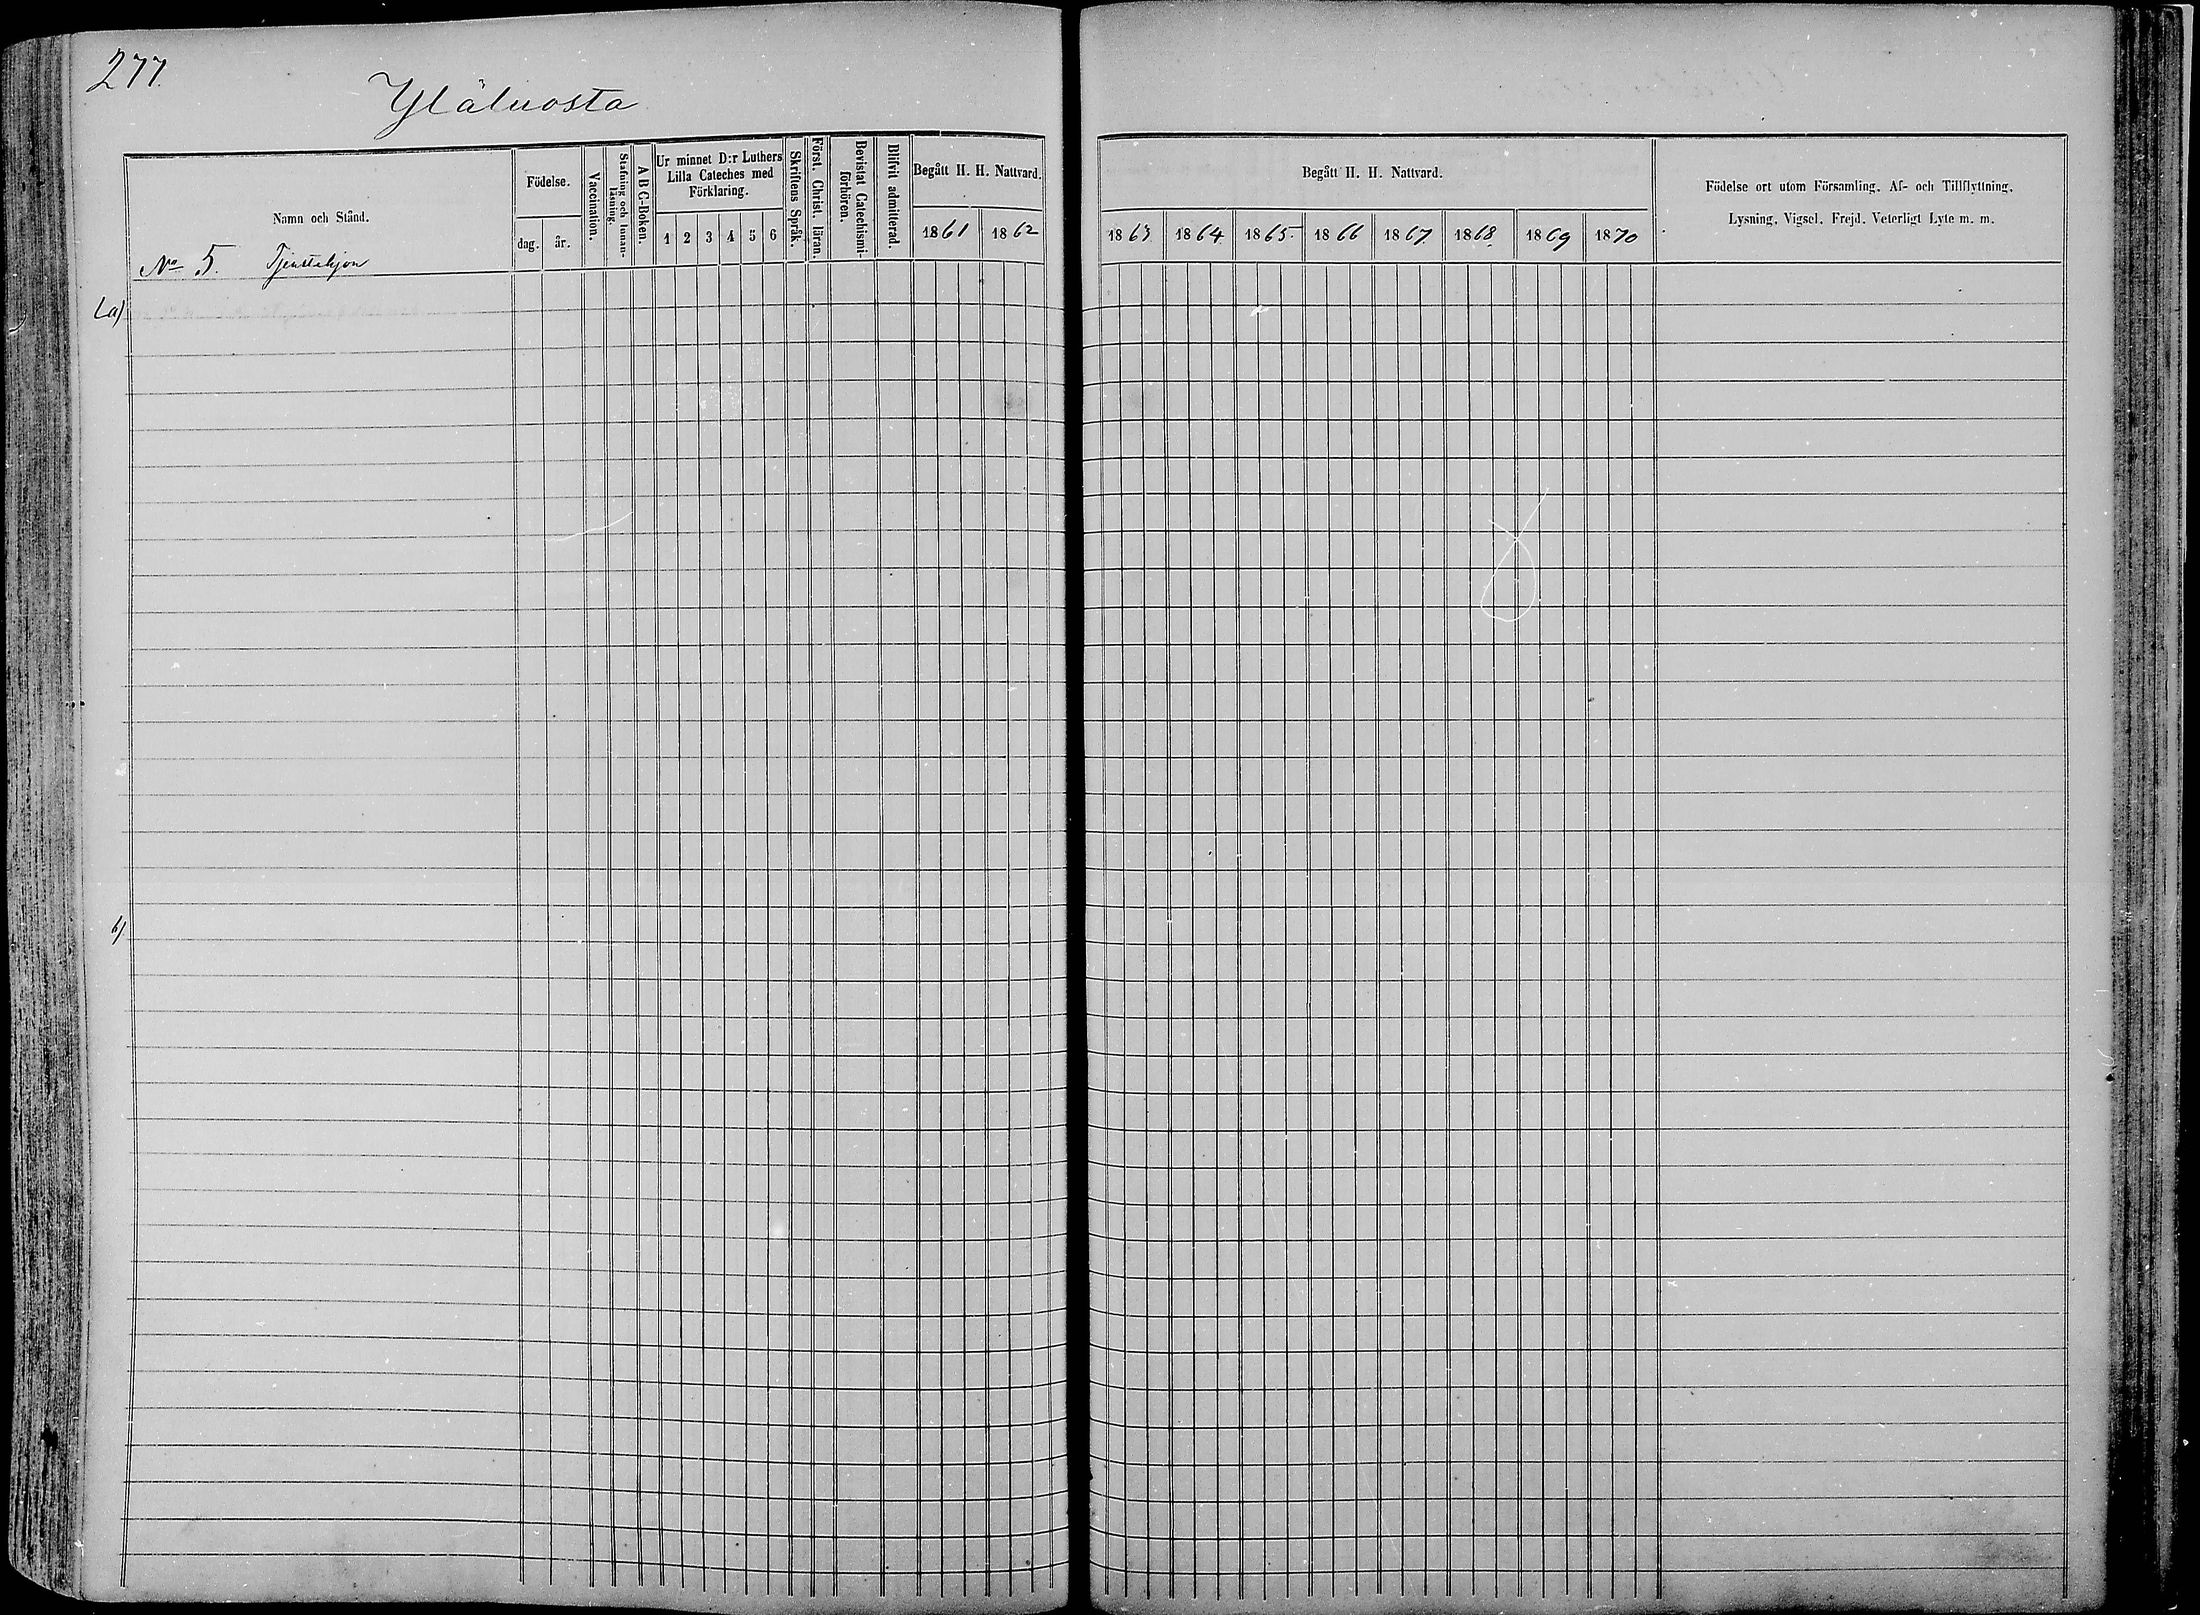 277.
Yläluosta
Namn och Stånd.
Födelse.
dag. år.
Vaccination.
Stafning och Innan-
läsning.
A B C-Boken.
Ur minnet D:r Luthers
Lilla Cateches med
Förklaring.
1 2 3 4 5 6
Skriftens Språk.
Först. Christ. läran.
Bevistat Catechismi-
förhören.
Blifvit admitterad.
Begått H. H. Nattvard.
1861 1862
Begått H. H. Nattvard.
1863 1864 1865 1866 1867 1868 1869 1870
Födelse ort utom Församling, Af- och Tillflyttning,
Lysning, Vigsel, Frejd, Veterligt Lyte m. m.
No 5. Tjenstehjon
a)
b)